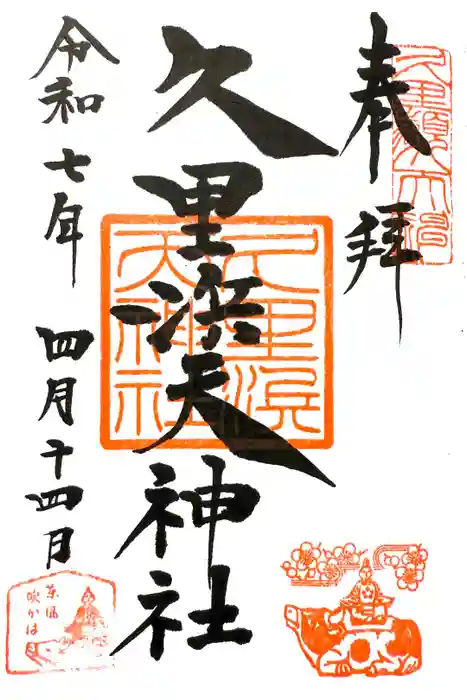 奉拝
久里浜天神社
令和七年
四月十四日
久里濱天神
久里浜天神社
東風
吹かば